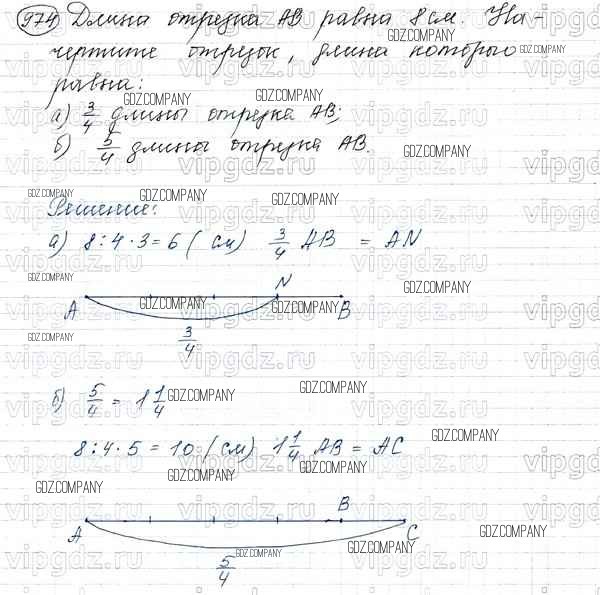 974 Длина отрезка AB равна 8 см. На-
чертите отрезок, длина которого
равна:
а) 3/4 длины отрезка AB;
б) 5/4 длины отрезка AB.
Решение:
а) 8 : 4 · 3 = 6 (см) 3/4 AB = AN
A N B
3/4
б) 5/4 = 1 1/4
8 : 4 · 5 = 10 (см) 1 1/4 AB = AC
A B C
5/4
GDZ.COMPANY
vipgdz.ru